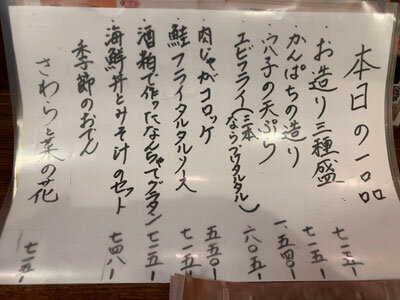 本日の一品
・お造り三種盛 七一五-
・かんぱちの造り 七一五-
・穴子の天ぷら 一、五四〇-
・エビフライ(三本 タルタル) 六〇五-
・肉じゃがコロッケ 五五〇-
・鮭フライタルタルソース 七一五-
・酒粕で作ったなんちゃってグラタン 七一五-
・海鮮丼とみそ汁のセット 七四八-
季節のおでん
さわらと菜の花 七一五-